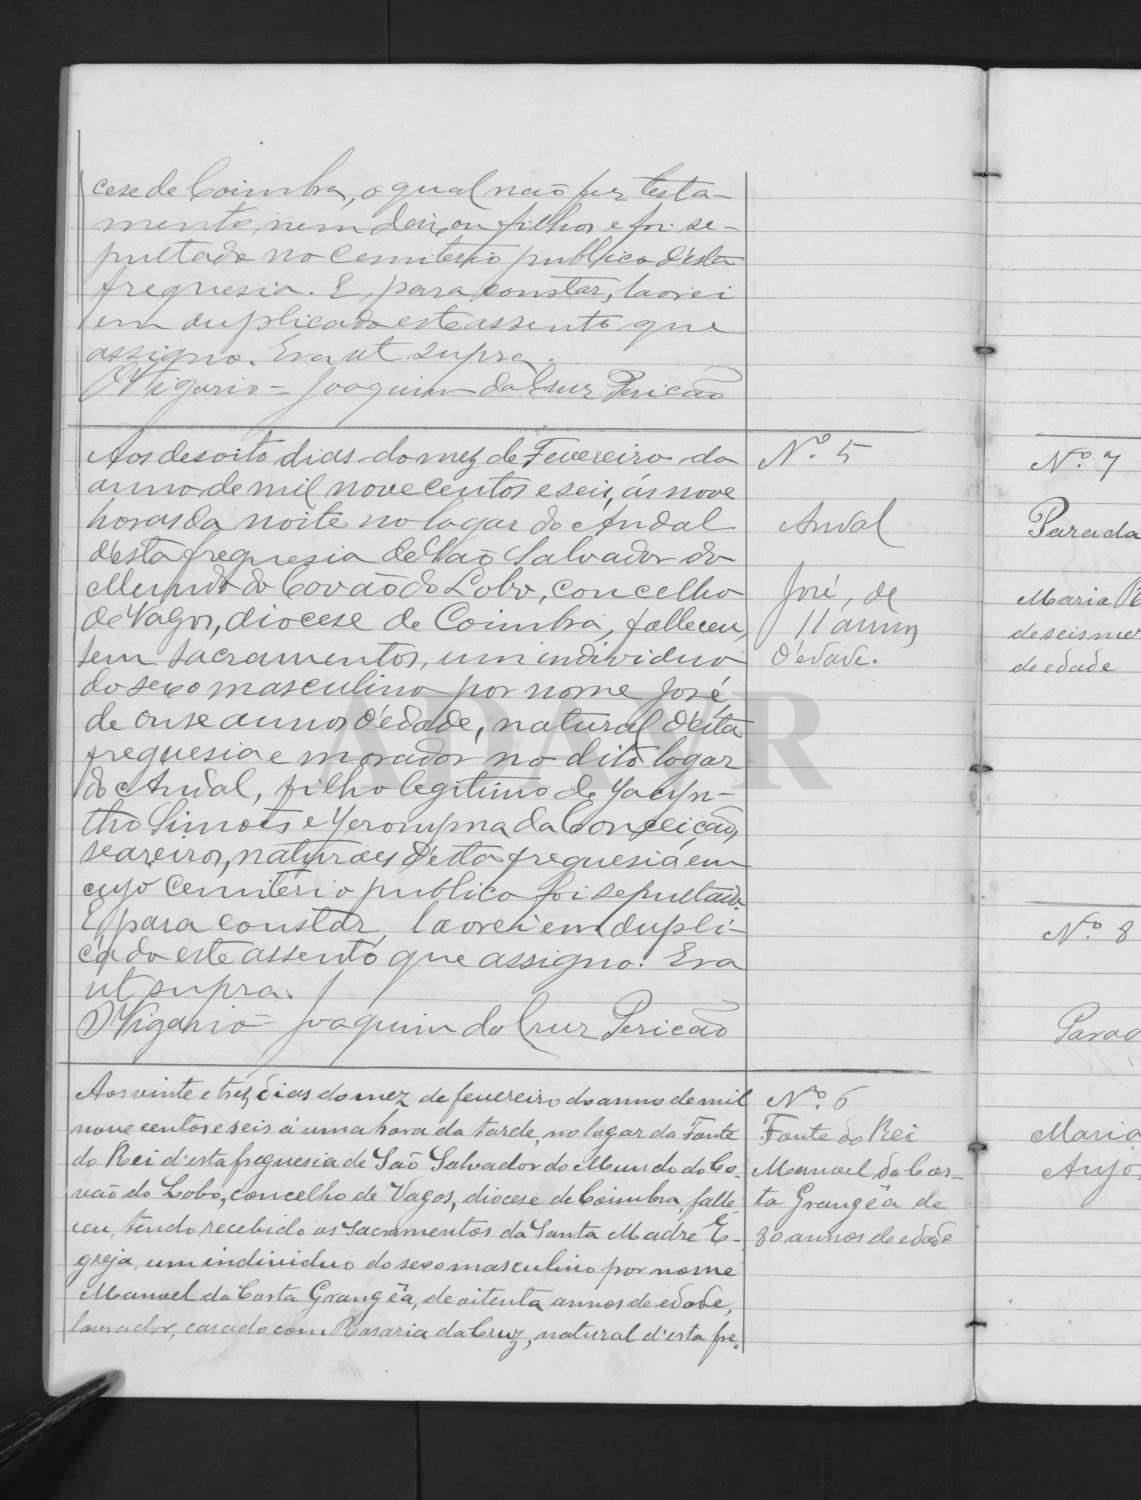 cese de Coimbra, o qual não fez testa-
mento, nem deixou filhos e foi se-
pultado no cemiterio publico d'esta
freguesia. E, para constar, lavrei
em duplicado este assento que
assigno. Era ut supra.
O Vigario = Joaquim da Cruz Pericão
Aos desoito dias do mez de Fevereiro do
anno de mil nove centos e seis, ás nove
horas da noite no logar do Andal
d'esta freguesia de São Salvador do
Mundo do Covão do Lobo, concelho
de Vagos, diocese de Coimbra, falleceu,
sem sacramentos, um individuo
do sexo masculino por nome José
de onse annos d'edade, natural d'esta
freguesia e morador no dito logar
do Andal, filho legitimo de Jacyn-
tho Simões e Jeronyma da Conceição,
seareiros, naturaes d'esta freguesia em
cujo cemiterio publico foi sepultado.
E, para constar, lavrei em dupli-
cado este assento que assigno. Era
ut supra.
O Vigario = Joaquim da Cruz Pericão
Aos vinte e tres dias do mez de fevereiro do anno de mil
nove centos e seis á uma hora da tarde, no logar da Fonte
do Rei d'esta freguesia de São Salvador do Mundo do Co-
vão do Lobo, concelho de Vagos, diocese de Coimbra, falle-
ceu, tendo recebido os sacramentos da Santa Madre E-
greja, um individuo do sexo masculino por nome
Manuel da Costa Grangêa, de oitenta annos de edade,
lavrador, casado com Rosaria da Cruz, natural d'esta fre-
Nº. 5
Andal
José, de
11 annos
d'edade.
Nº. 6
Fonte do Rei
Manuel da Cos-
ta Grangêa de
80 annos de edade
Nº. 7
Parada
Maria
de seis mez
de edade
Nº. 8
Parad
Maria
Anjo
ADAVR